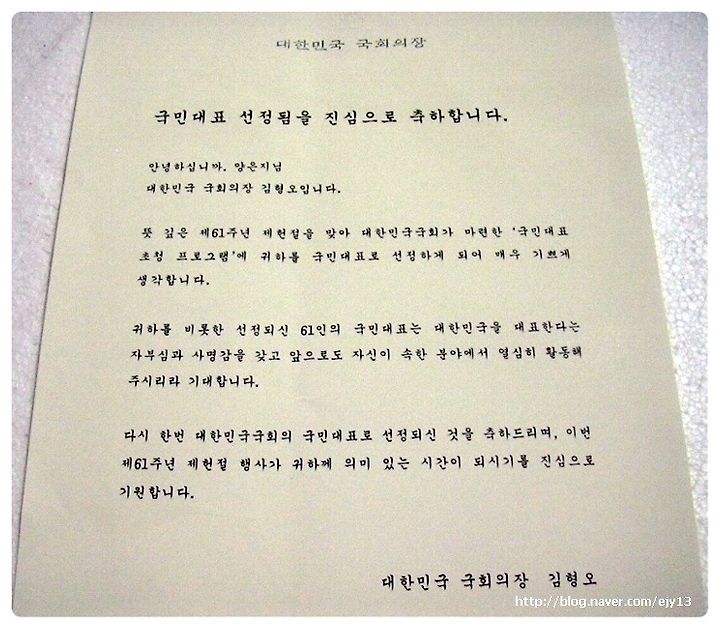 대한민국 국회의장
국민대표 선정됨을 진심으로 축하합니다.
안녕하십니까. 양은지님
대한민국 국회의장 김형오입니다.
뜻 깊은 제61주년 제헌절을 맞아 대한민국국회가 마련한 '국민대표
초청 프로그램'에 귀하를 국민대표로 선정하게 되어 매우 기쁘게
생각합니다.
귀하를 비롯한 선정되신 61인의 국민대표는 대한민국을 대표한다는
자부심과 사명감을 갖고 앞으로도 자신이 속한 분야에서 열심히 활동해
주시리라 기대합니다.
다시 한번 대한민국국회의 국민대표로 선정되신 것을 축하드리며, 이번
제61주년 제헌절 행사가 귀하께 의미 있는 시간이 되시기를 진심으로
기원합니다.
대한민국 국회의장 김형오
http://blog.naver.com/ejy13